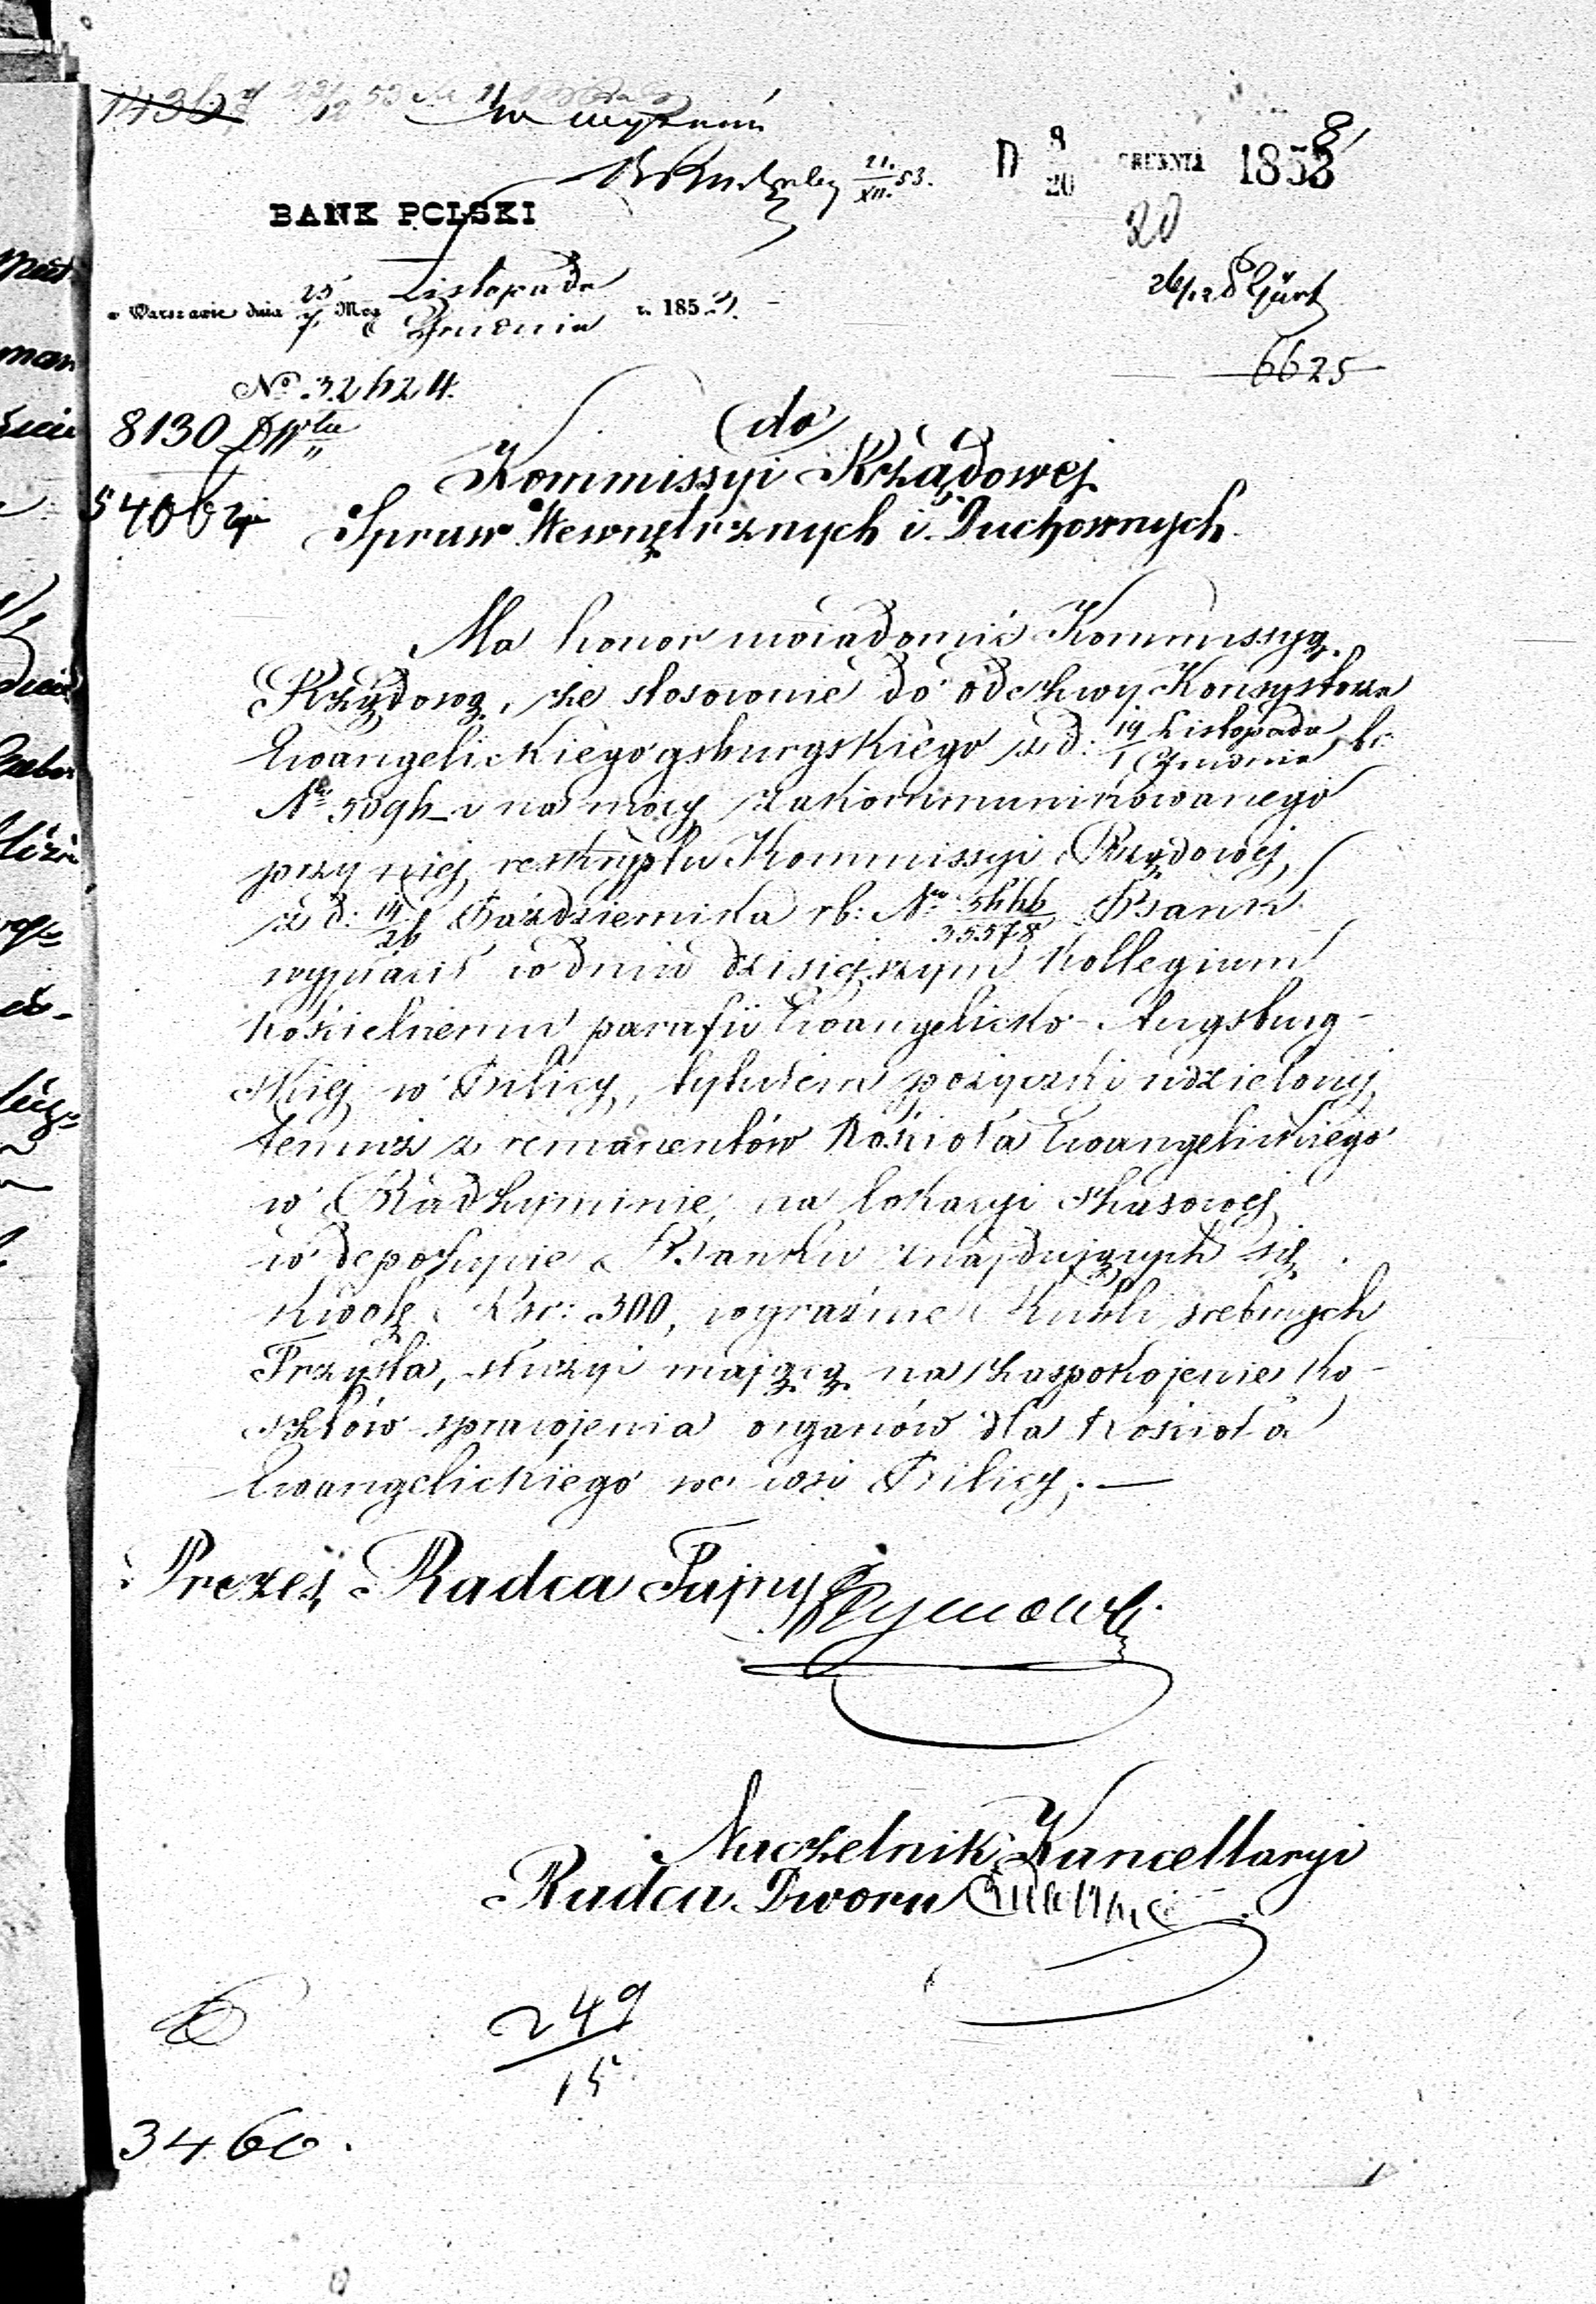 w
D 8/20 GRUDNIA 1853
21./XII. 53.
BANK POLSKI
20
w Warszawie dnia 25/7 Mca Listopada/Grudnia r. 1853.
26/12
6625
No 32624.
8130
do
54062
Kommissyi Rządowej
Spraw Wewnętrznych i Duchownych
Ma honor uwiadomić Kommissyą
Rządową, że stosownie do odezwy Konsystorza
Ewangelickiego gsburgskiego z d: 19 Listopada/1 Grudnia br:
No i na mocy zakommunikowanego
przy niej reskryptu Kommissyi Rządowej
z d: 14/26 Października rb: No Bank
wypłacił w dniu dzisiejszym Kollegium
Kościelnemu parafii Ewangelicko-Augsburg-
skiej w Pilicy, tytułem pożyczki udzielonej
temuż z remanentów Kościoła Ewangelickiego
w Radzyminie, na lokacyi skasowej
w depozycie Banku znajdujących się
Kwotę Rsr: 300, wyraźnie Rubli srebrnych
Trzysta, służyć mającą na zaspokojenie ko-
sztów sprawienia organów dla Kościoła
Ewangelickiego we wsi Pilicy. —
Prezes, Radca Tajny
Naczelnik Kancellaryi
Radca Dworu
249/15
3460.